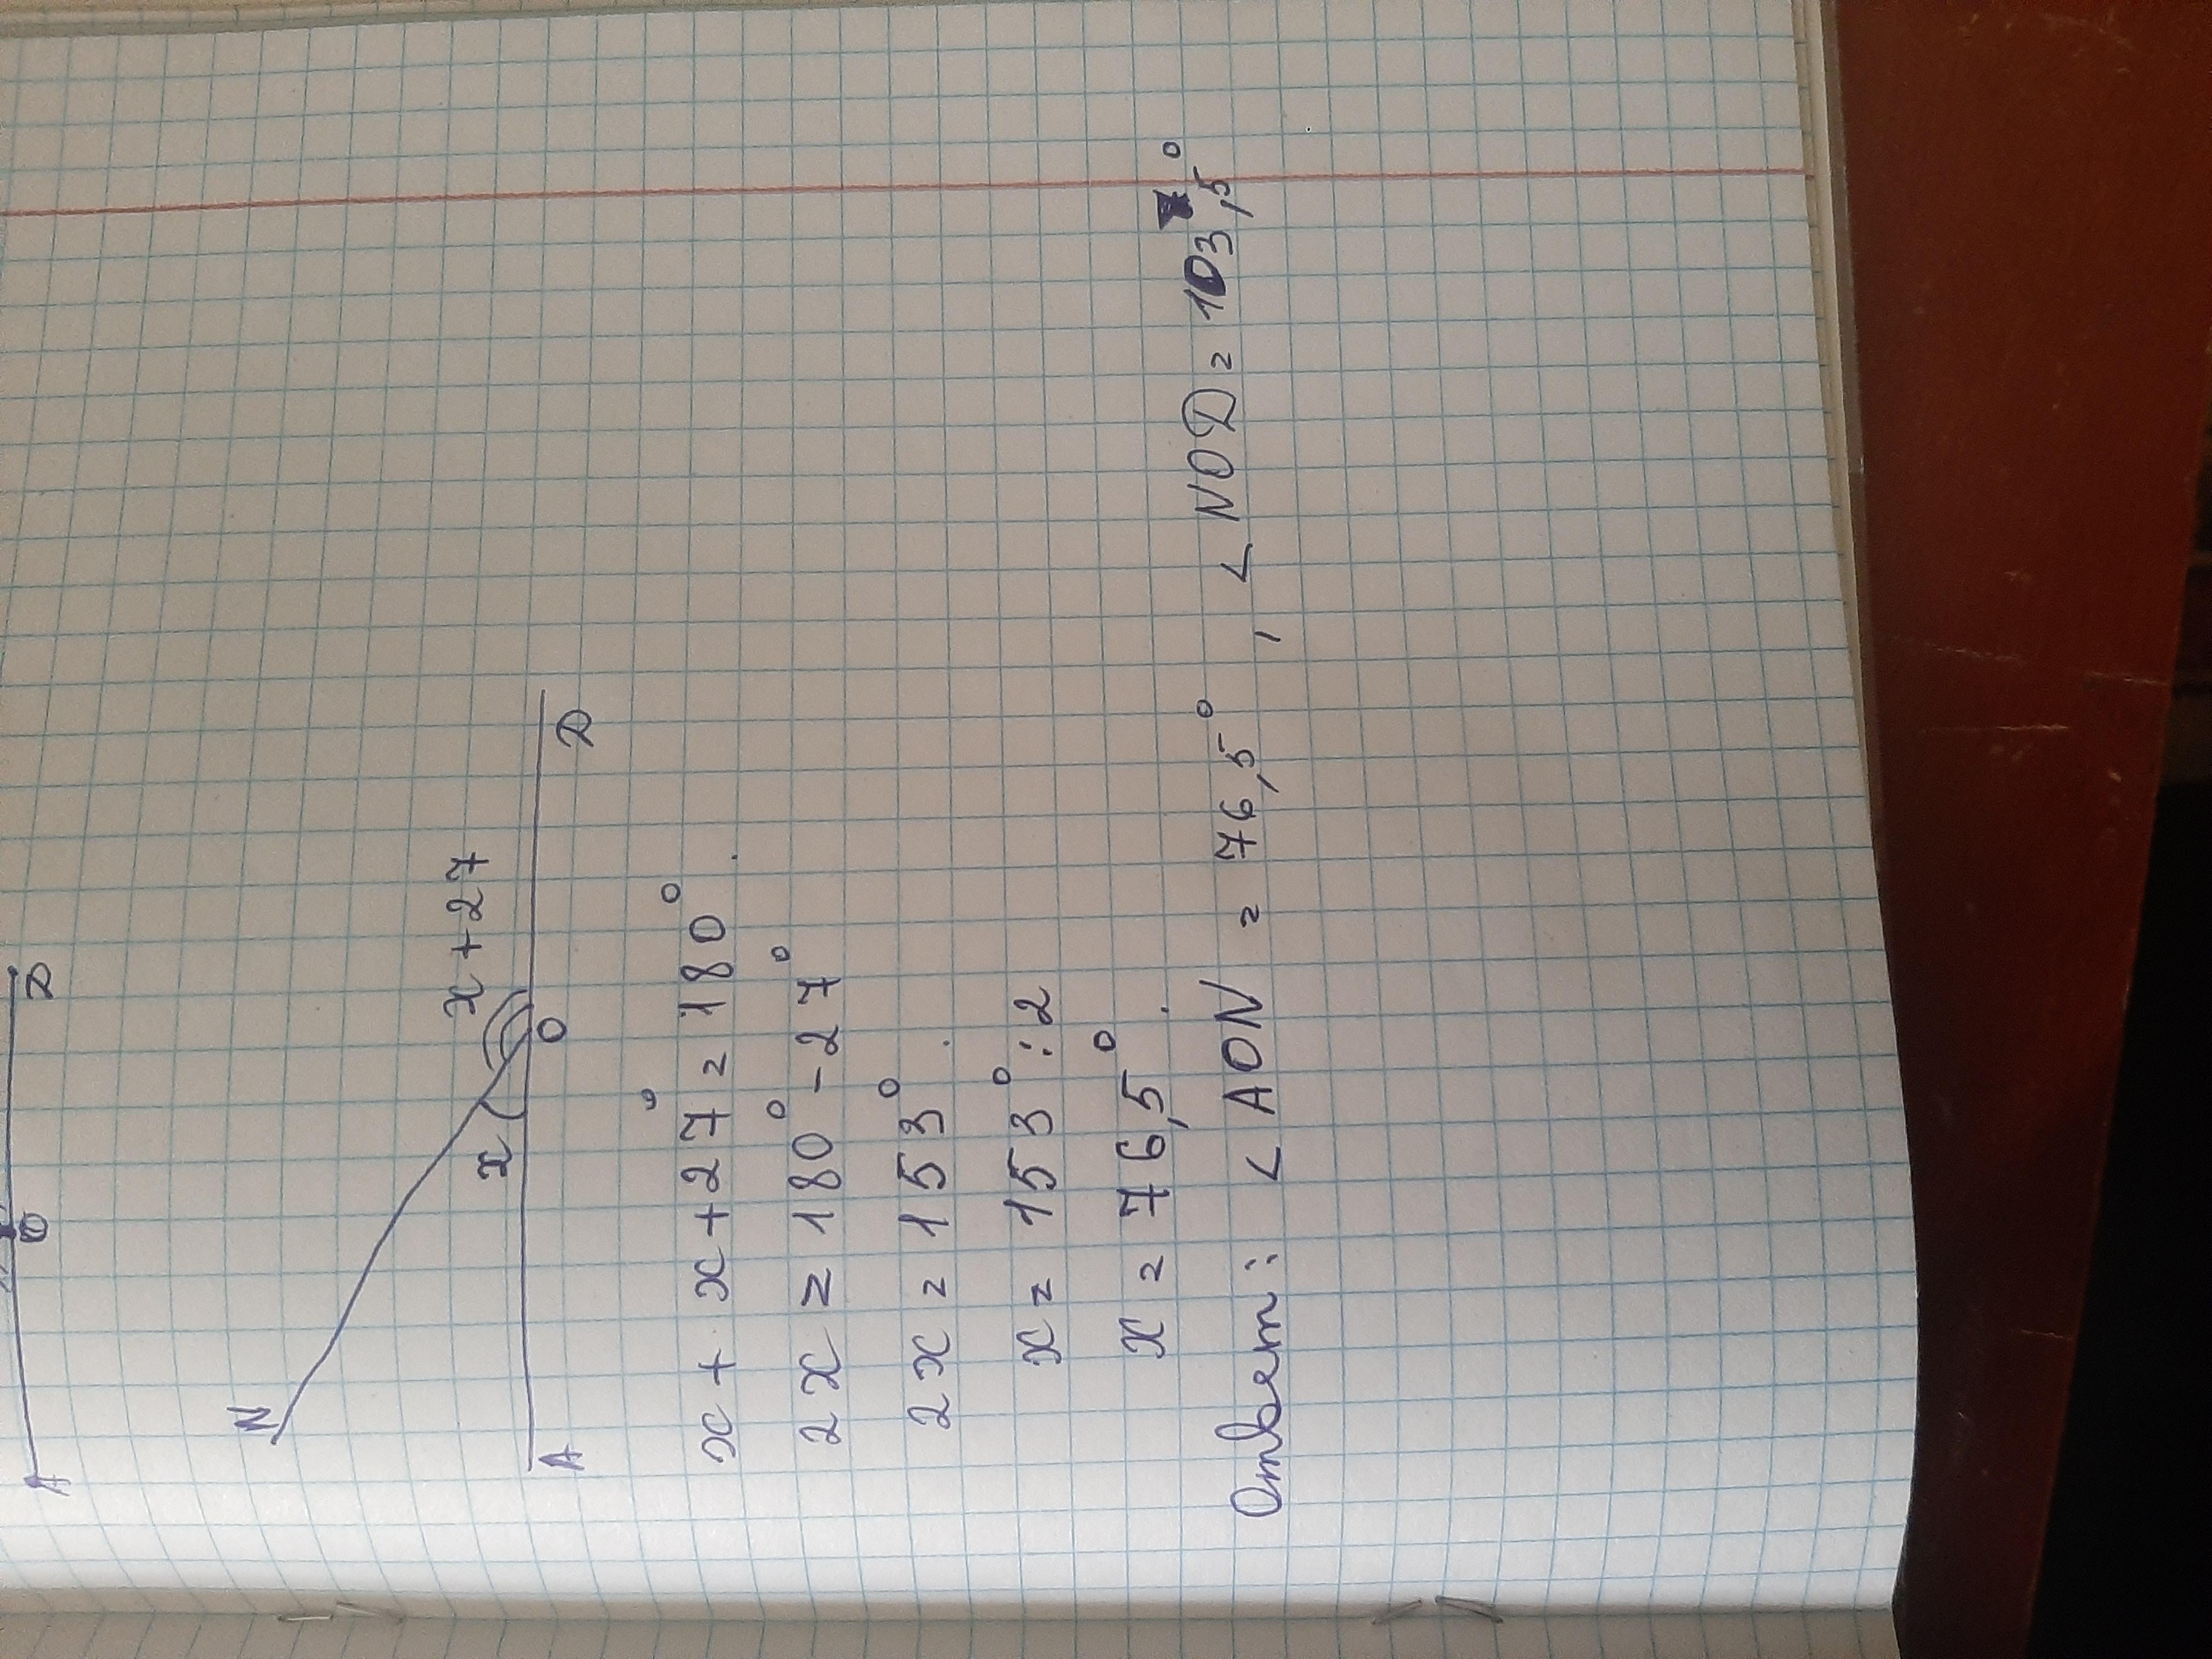 A O D
N
x x+27
A O D
x + x + 27° = 180°.
2x = 180° - 27°
2x = 153°.
x = 153° : 2
x = 76,5°.
Ответ: ∠ AON = 76,5°, ∠ NOD = 103,5°